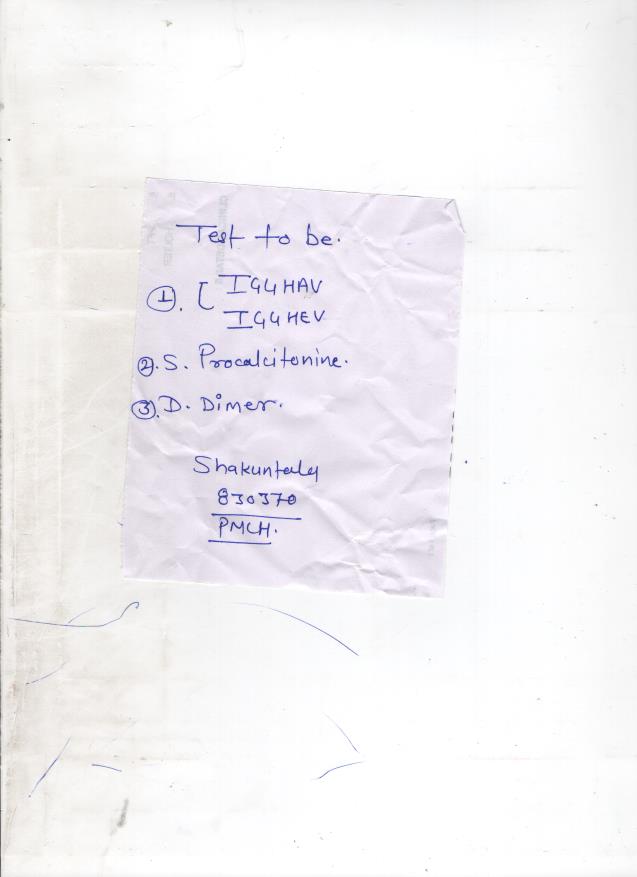 Test to be.
①. [ IGG HAV
IGG HEV
②. S. Procalcitonine.
③. D. Dimer.
Shakuntala
830370
PMCH.